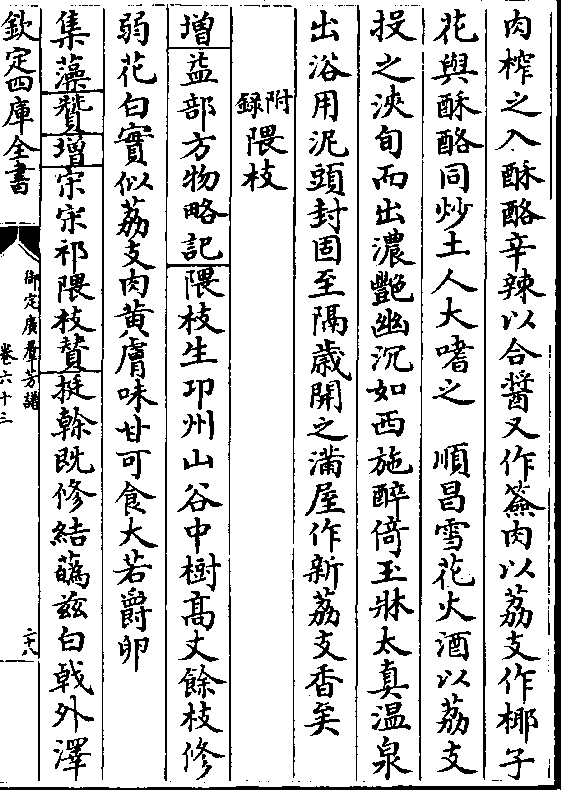 肉榨之入酥酪辛辣以合醬又作簽肉以荔支作椰子
花與酥酪同炒土人大嗜之　順昌雪花火酒以荔支
投之浹旬而出濃艷幽沉如西施醉倚玉牀太真温泉
出浴用泥頭封固至隔歳開之滿屋作新荔支香矣
附録隈枝
增益部方物略記隈枝生邛州山谷中樹髙丈餘枝修
弱花白實似荔支肉黄膚味甘可食大若爵卵
集藻贊增宗宋祁隈枝贊挺榦既修結蘤兹白戟外澤
欽定四庫全書
御定廣羣芳譜
卷六十三
二十八